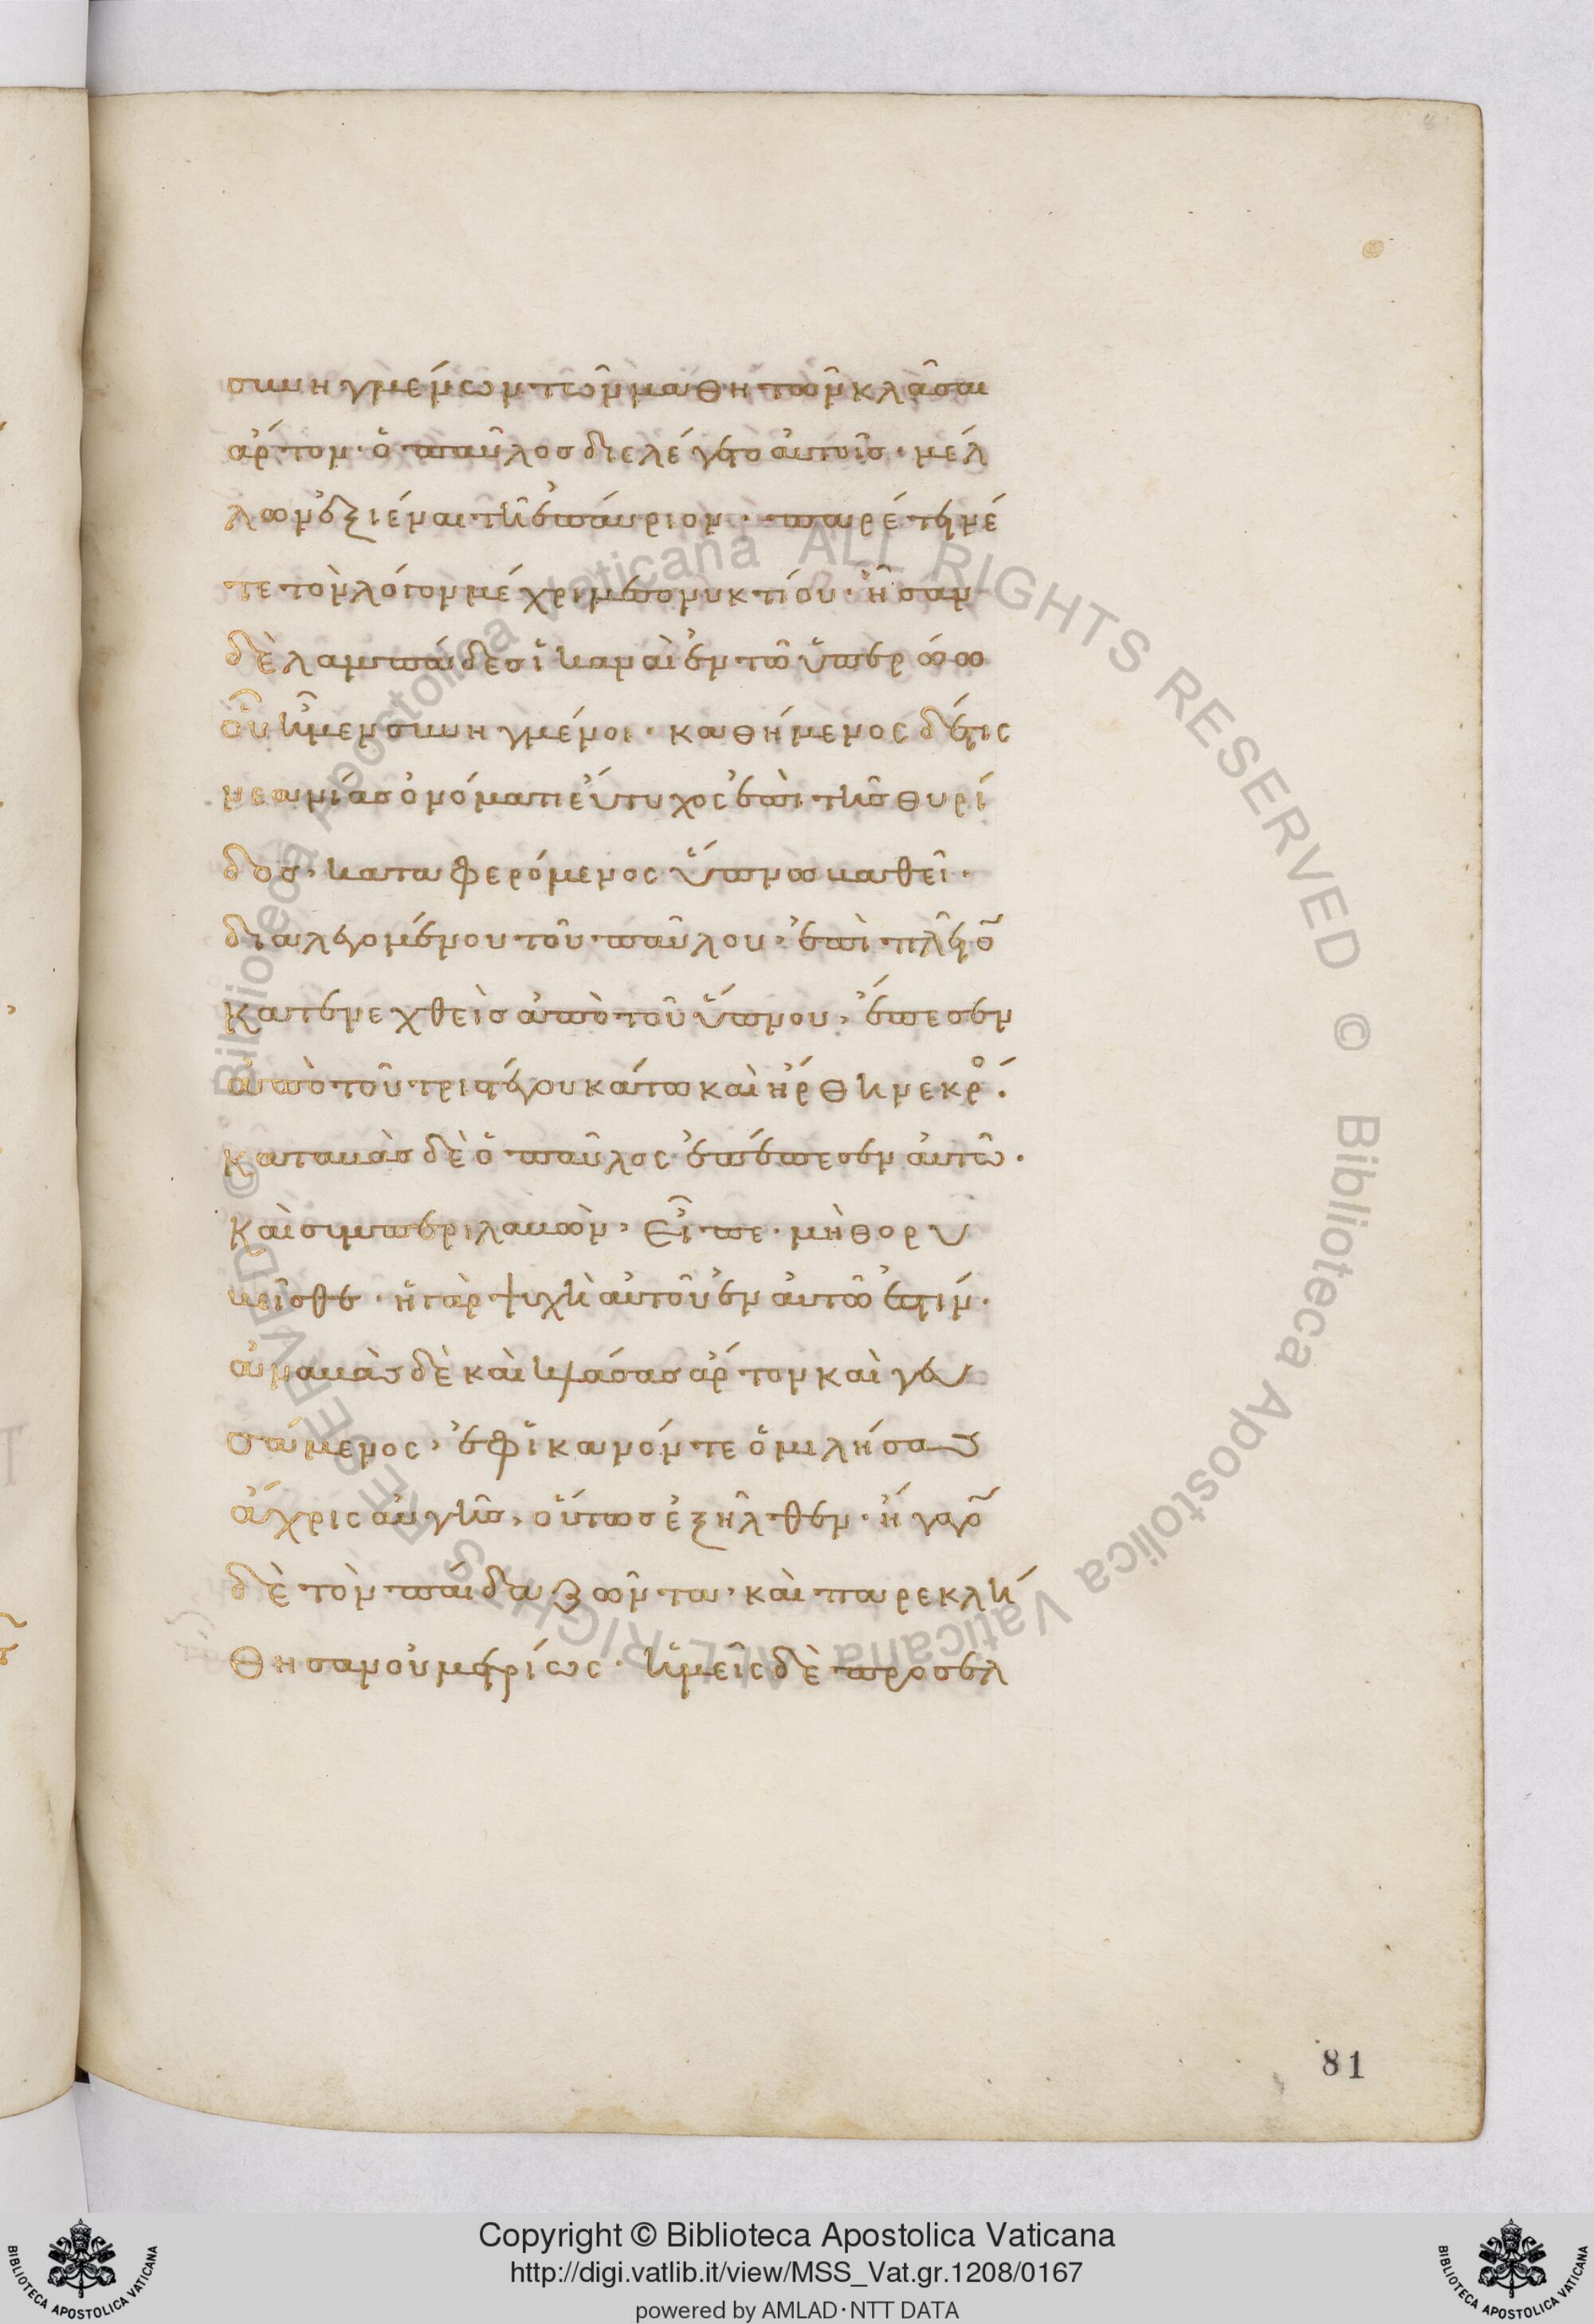 συνηγμένων τῶν μαθητῶν κλᾶσαι
ἄρτον· ὁ παῦλος διελέγετο αὐτοῖς· μέλ
λων ἐξιέναι τῆ ἐπάυριον· παρέτεινέ
τε τὸν λόγον μέχρι μεσονυκτίου· ἦσαν
δὲ λαμπάδες ἱκαναὶ ἐν τῶ ὑπερώω
οὗ ἦμεν συνηγμένοι· καθήμενος δέ τις
νεανίας ὀνόματι εὔτυχος ἐπὶ τῆς θυρί
δος, καταφερόμενος ὕπνω βαθεῖ·
διαλεγομένου τοῦ παύλου, ἐπὶ πλεῖο̃
κατενεχθεὶς ἀπὸ τοῦ ὕπνου, ἔπεσεν
ἀπὸ τοῦ τριστέγου κάτω καὶ ἤρθη νεκρὸ·
καταβὰς δὲ ὁ παῦλος ἐπέπεσεν αὐτῶ·
καὶ συμπεριλαβὼν, εἶπε· μὴ θορυ
βεῖσθε· ἡ γὰρ ψυχὴ αὐτοῦ ἐν αὐτῶ ἐστιν·
ἀναβὰς δὲ καὶ κλάσας ἄρτον καὶ γευ
σάμενος, ἐφ ἱκανόν τε ὁμιλήσας
ἄχρις αὐγῆς, οὕτως ἐξῆλθεν· ἤγαγο̃
δὲ τὸν παίδα ζῶντα, καὶ παρεκλή
θησαν οὐ μετρίως· ἡμεῖς δὲ προσελ
81
Copyright © Biblioteca Apostolica Vaticana
http://digi.vatlib.it/view/MSS_Vat.gr.1208/0167
powered by AMLAD·NTT DATA
Biblioteca Apostolica Vaticana ALL RIGHTS RESERVED ©
Biblioteca Apostolica Vaticana ALL RIGHTS RESERVED ©
BIBLIOTECA APOSTOLICA VATICANA
BIBLIOTECA APOSTOLICA VATICANA